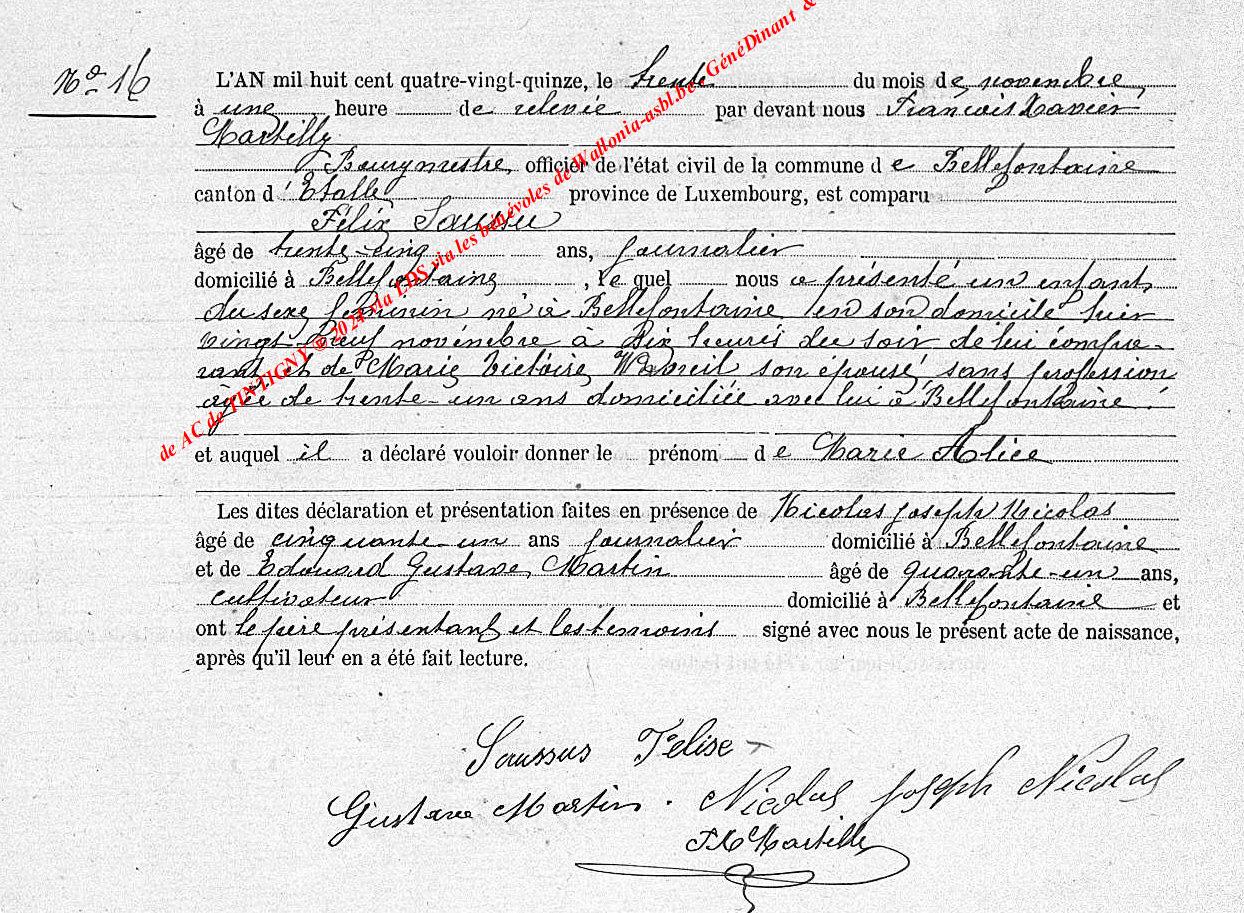 No 16
L'AN mil huit cent quatre-vingt-quinze, le trente du mois de novembre,
à une heure de relevée par devant nous François Xavier
Martilly
Bourgmestre, officier de l'état civil de la commune de Bellefontaine
canton d'Etalle province de Luxembourg, est comparu
Félix Saussu
âgé de trente-cinq ans, journalier
domicilié à Bellefontaine, lequel nous a présenté un enfant
du sexe féminin né à Bellefontaine en son domicile hier
vingt neuf novembre à dix heures du soir de lui compa-
rant et de Marie Victoire son épouse, sans profession
âgée de trente-un ans domiciliée avec lui à Bellefontaine.
et auquel il a déclaré vouloir donner le prénom de Marie Alice
Les dites déclaration et présentation faites en présence de Nicolas Joseph Nicolas
âgé de cinquante-un ans journalier domicilié à Bellefontaine
et de Edouard Gustave Martin âgé de quarante-un ans,
cultivateur domicilié à Bellefontaine et
ont le père présentant et les temoins signé avec nous le présent acte de naissance,
après qu'il leur en a été fait lecture.
Saussus Félise
Gustave Martin. Nicolas Joseph Nicolas
F X Martilly
de AC de TINTIGNY @ 2024 via LDS via les bénévoles de Wallonia-asbl.be - GénéDinant &